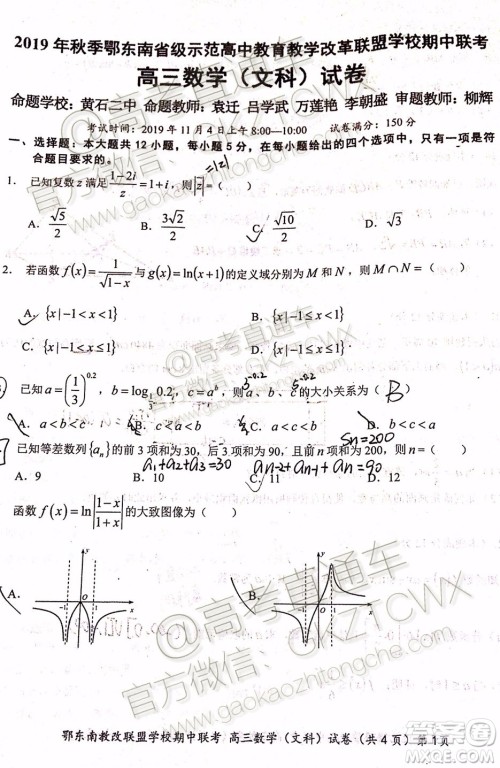 2019 年秋季鄂东南省级示范高中教育教学改革联盟学校期中联考
高三数学（文科）试卷
命题学校：黄石二中 命题教师：袁迁 吕学武 万莲艳 李朝盛 审题教师：柳辉
考试时间：2019 年 11 月 4 日上午 8:00—10:00 试卷满分：150 分
一、选择题：本大题共 12 小题，每小题 5 分，在每小题给出的四个选项中，只有一项是符
合题目要求的。
1. 已知复数 z 满足 (1-2i)/z = 1+i，则|z̄|=（ ） =|z|
A. √5/2 B. 3√2/2 C. √10/2 D. √3
2. 若函数 f(x)=1/√(1-x) 与 g(x)=ln(x+1) 的定义域分别为 M 和 N，则 M∩N=（ ）
A. {x|-1<x<1} B. {x|-1≤x<1}
C. {x|-1≤x≤1} D. {x|-1<x≤1}
已知 a=(1/3)^0.2，b=log_(1/3) 0.2，c=a^b，则 a、b、c 的大小关系为（ B ）
A. a<b<c B. c<a<b C. a<c<b D. b<c<a
Sn=200
已知等差数列{aₙ}的前 3 项和为 30，后 3 项和为 90，且前 n 项和为 200，则 n=（ ）
a₁+a₂+a₃=30 an-2+an-1+an=90
A. 9 B. 10 C. 11 D. 12
函数 f(x)=ln|(1-x)/(1+x)| 的大致图像为（ ）
A. B.
y y
-1 O 1 x -1 O 1 x
@高考直通车
官方微信：GKZTCWX
www.gaokaozhitongche.com
@高考直通车
官方微信：GKZTCWX
www.gaokaozhitongche.com
鄂东南教改联盟学校期中联考 高三数学（文科）试卷（共 4 页）第 1 页